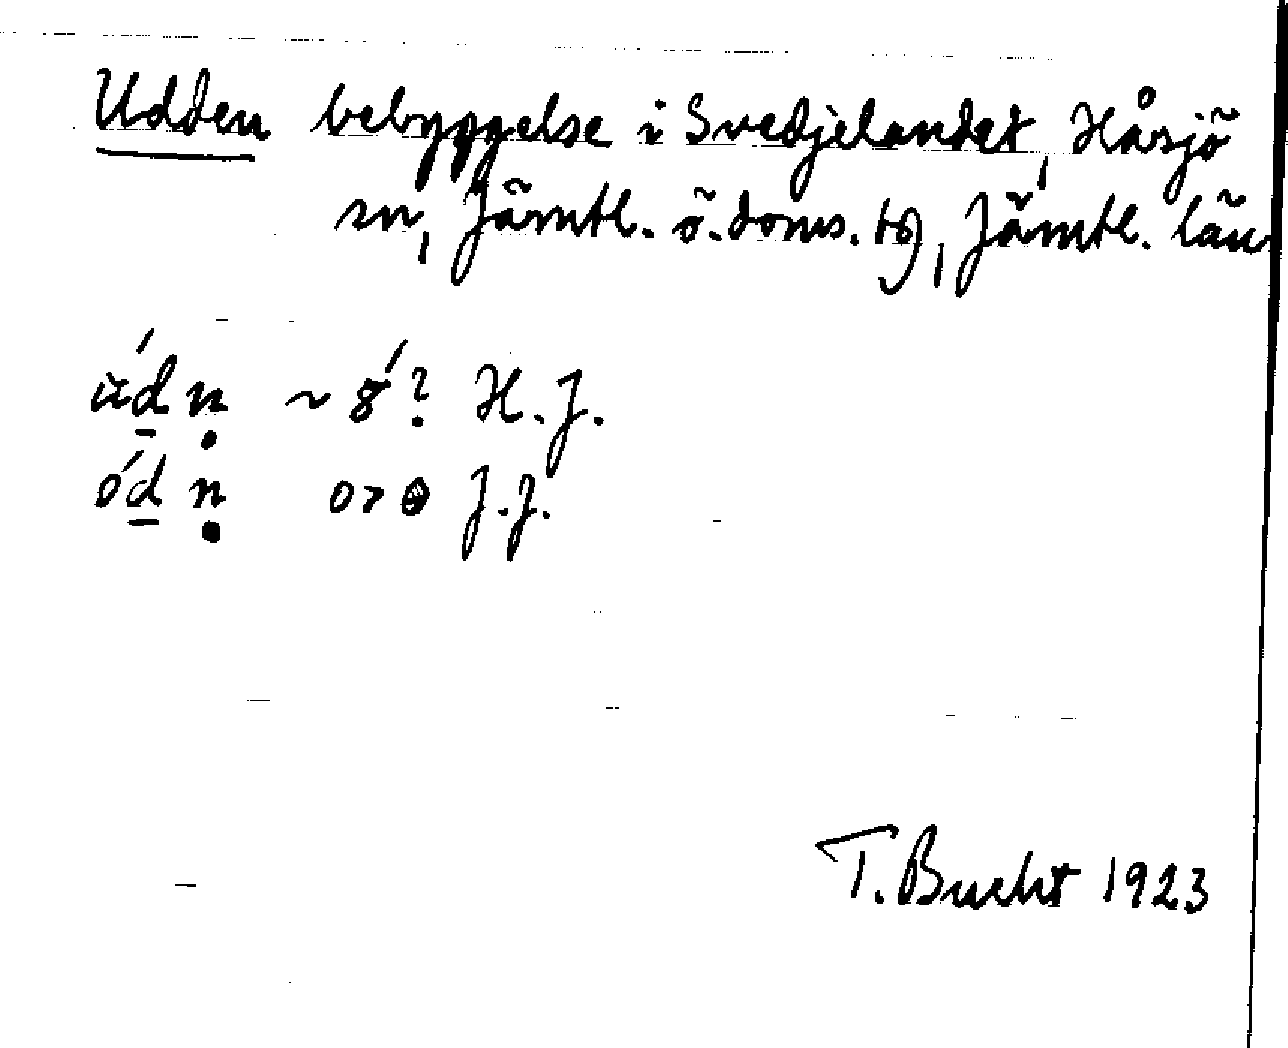 Udden bebyggelse i Svedjelandet, Håsjö
sn, Jämtl. ö. doms. tg, Jämtl. län
ŭ́d̲ṇ ~ 8́? H. J.
ód̲ṇ o > ɵ J. J.
T. Bucht 1923